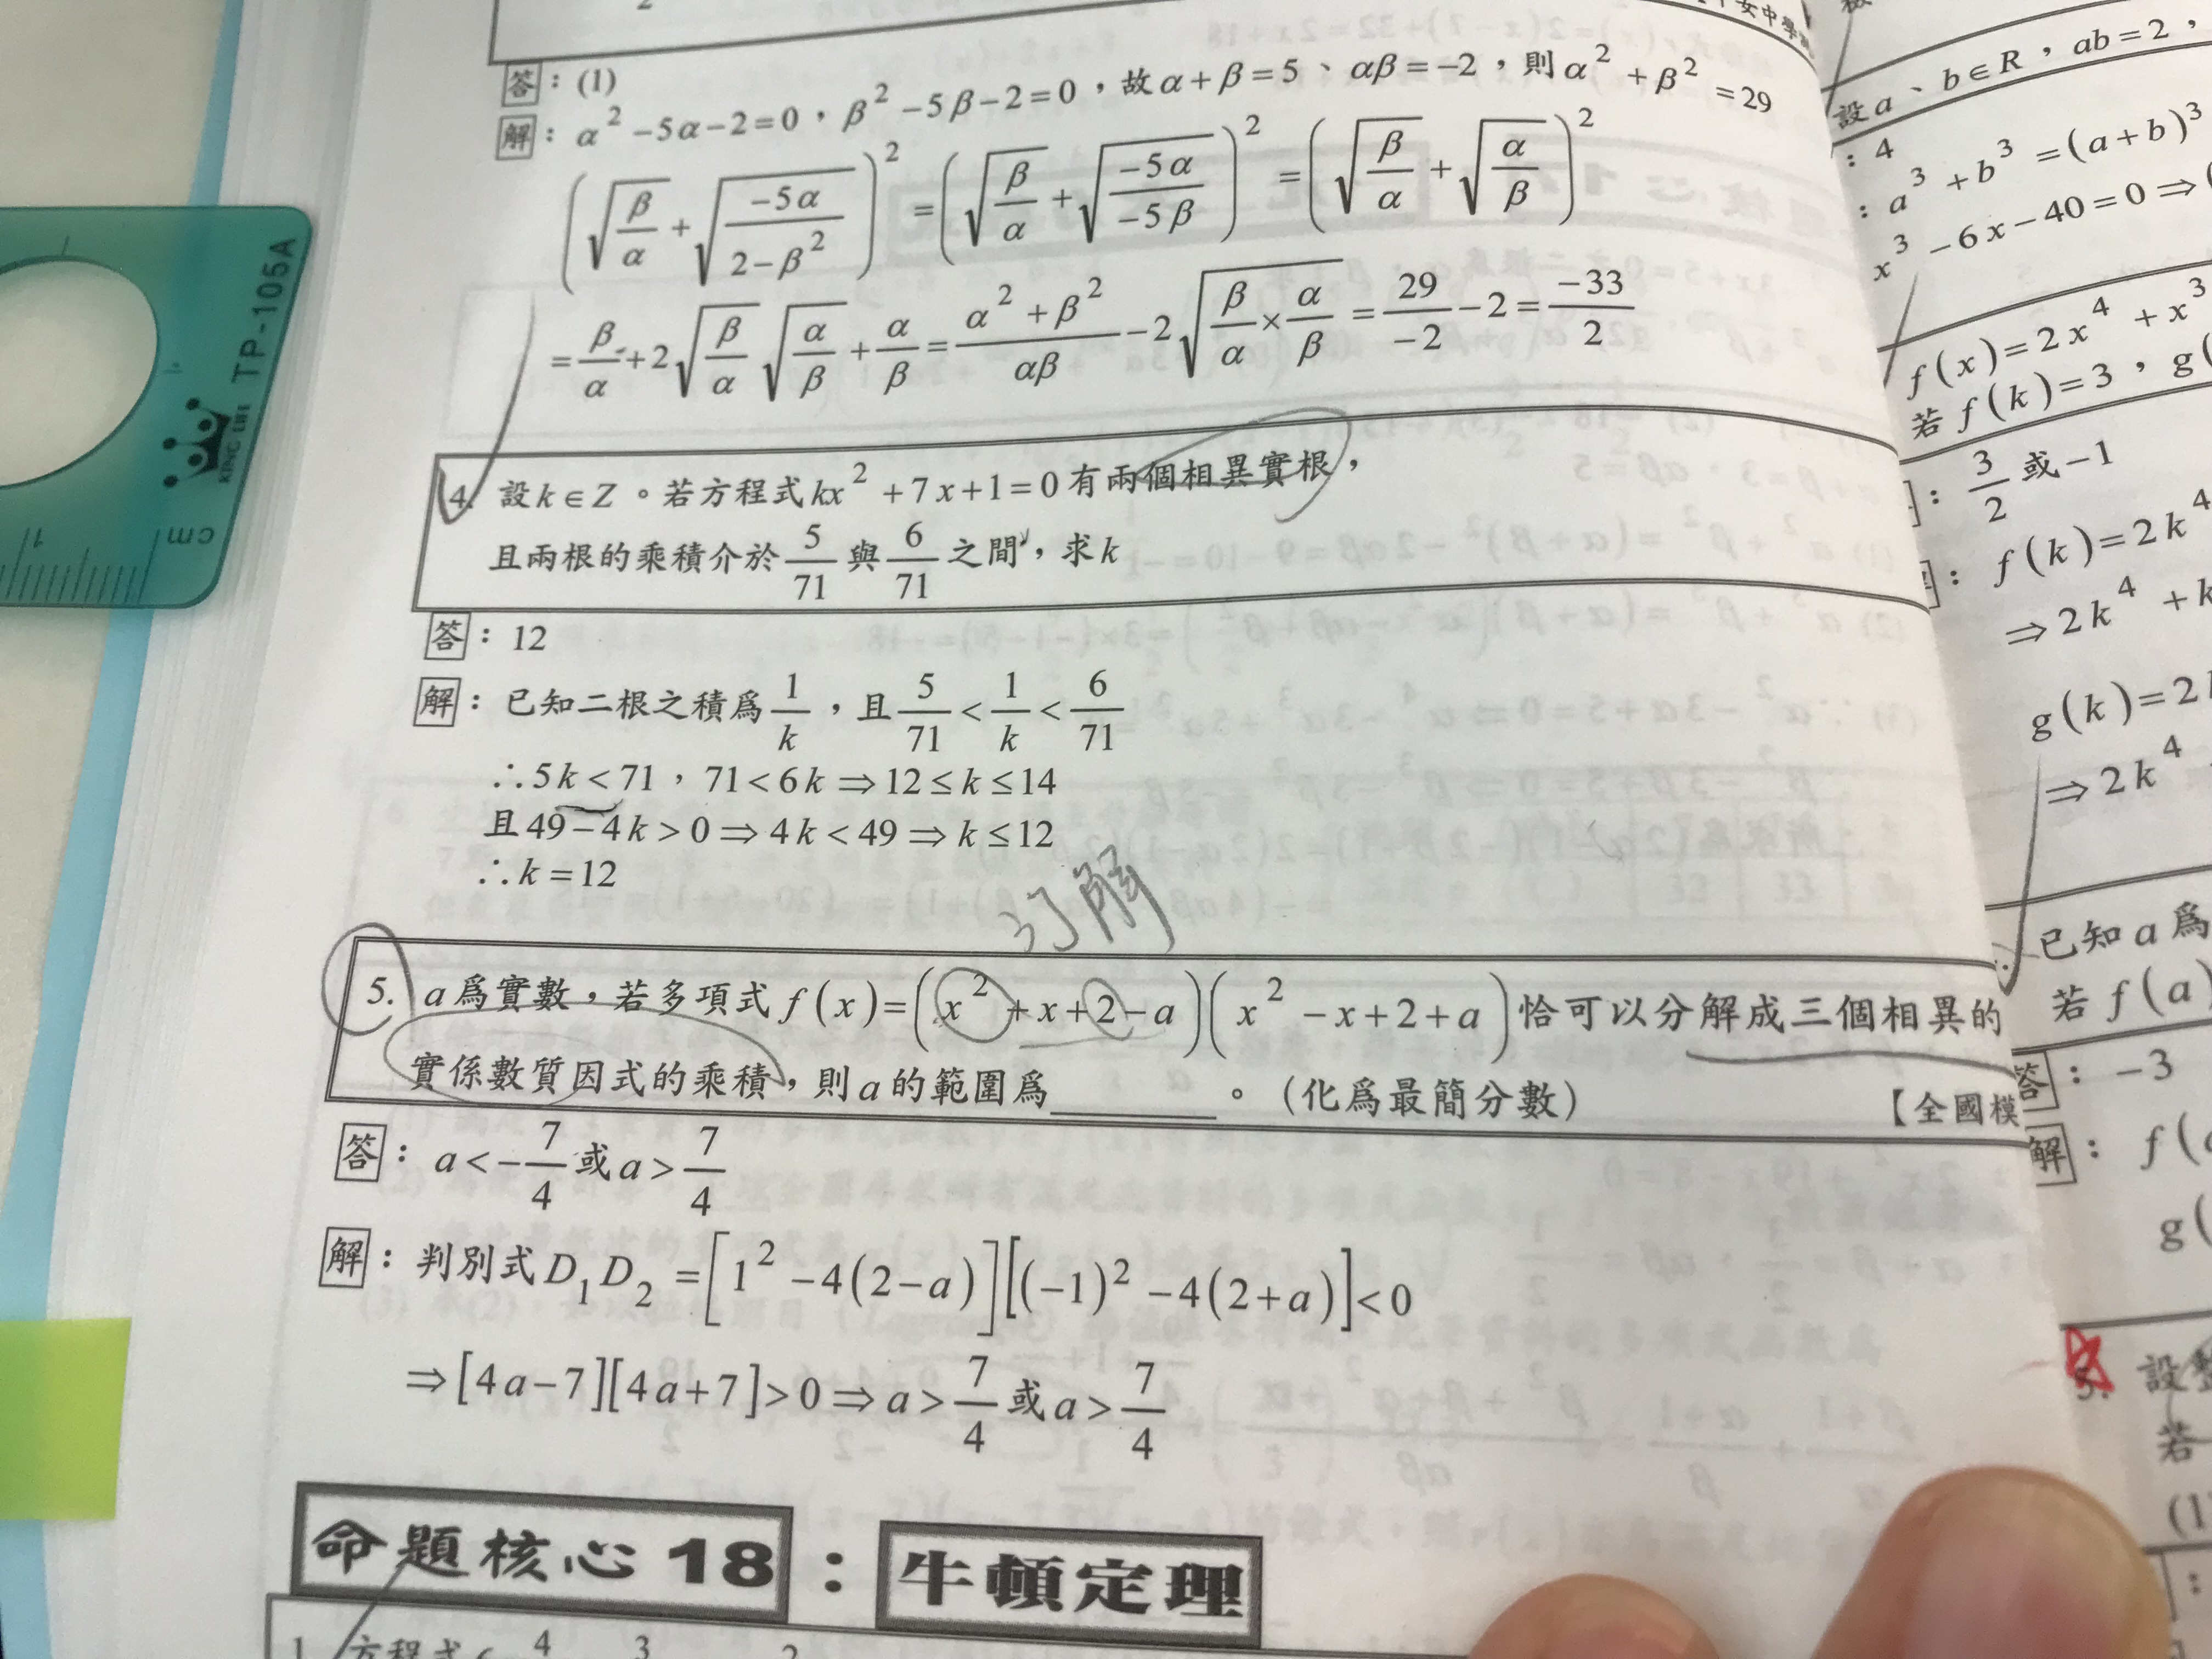 女中學
答：(1)
解：α² −5α−2=0，β² −5β−2=0，故α+β=5、αβ=−2，則α² +β² =29
(√(β/α) + √(−5α/(2−β²)))² = (√(β/α) + √(−5α/−5β))² = (√(β/α) + √(α/β))²
= β/α + 2√(β/α) √(α/β) + α/β = (α² +β²)/αβ −2√(β/α × α/β) = 29/−2 −2 = −33/2
4. 設k∈Z。若方程式kx² +7x+1=0有兩個相異實根，
且兩根的乘積介於5/71與6/71之間，求k
答：12
解：已知二根之積爲1/k，且5/71 < 1/k < 6/71
∴5k<71，71<6k⇒12≤k≤14
且49−4k>0⇒4k<49⇒k≤12
∴k=12
訂解
5. a爲實數，若多項式f(x)=(x² +x+2−a)(x² −x+2+a)恰可以分解成三個相異的
實係數質因式的乘積，則a的範圍爲______。（化爲最簡分數）
【全國模
答：a<−7/4或a>7/4
解：判別式D₁D₂ =[1² −4(2−a)][(−1)² −4(2+a)]<0
⇒[4a−7][4a+7]>0⇒a>7/4或a>7/4
命題核心18：牛頓定理
1. 方程式
設a、b∈R，ab=2，
：4
：a³ +b³ =(a+b)³
x³ −6x−40=0⇒(
f(x)=2x⁴ +x³
若f(k)=3，g(
：3/2或−1
：f(k)=2k⁴
⇒2k⁴ +k
g(k)=2
⇒2k⁴
已知a爲
若f(a)
答：−3
解：f(
g(
5. 設整
若
(1
TP-105A
KING LIFE
cm
1